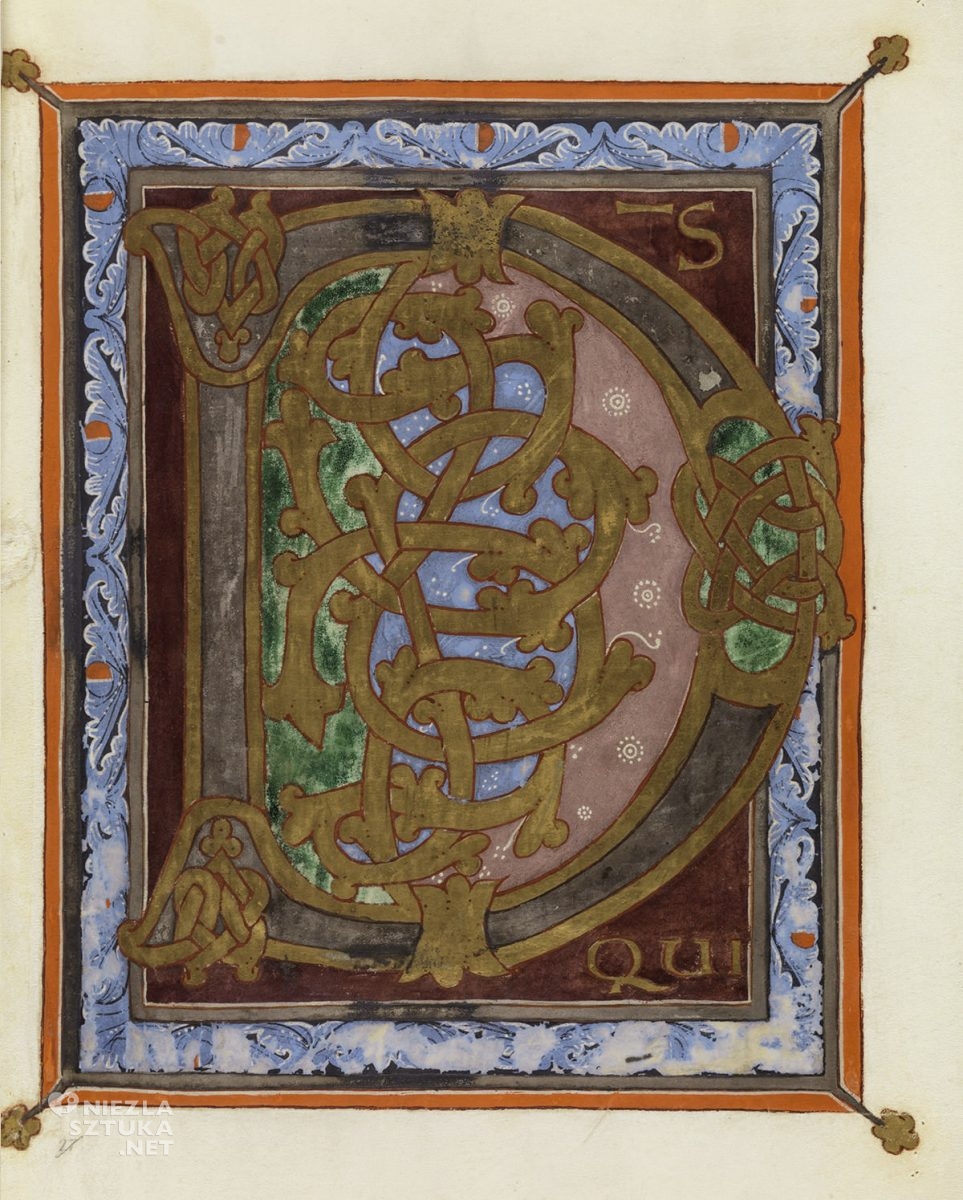 D̄S
QUI
NIEZLA
SZTUKA
.NET